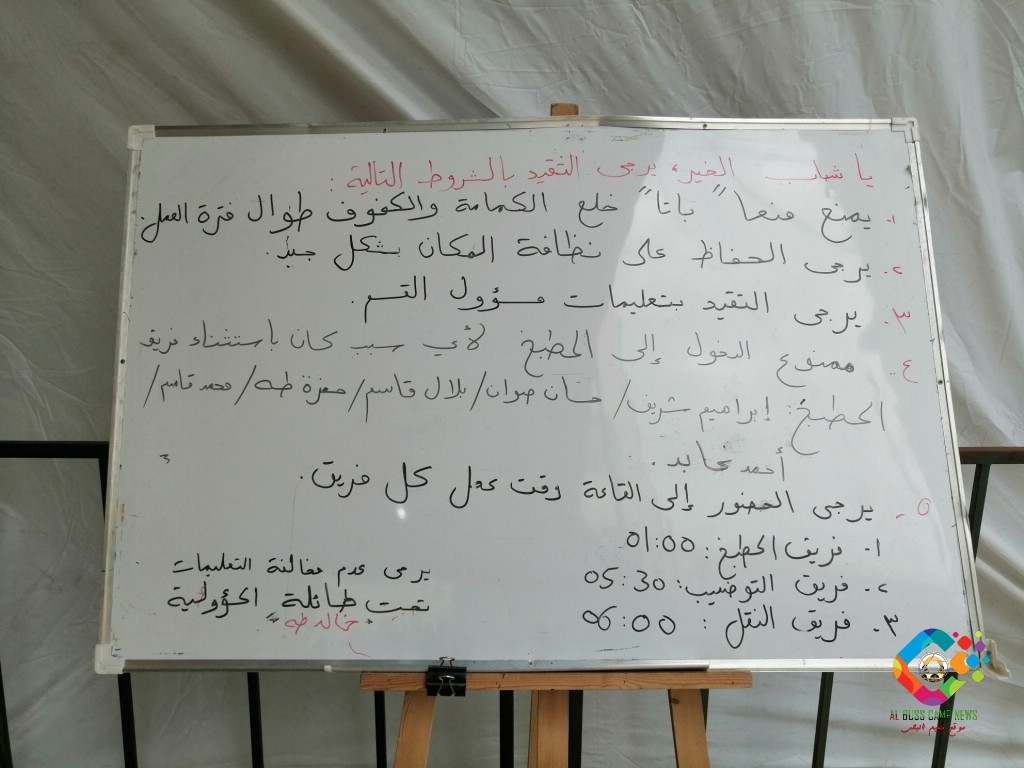 يا شباب الخير، يرجى التقيد بالشروط التالية:
١. يمنع منعاً باتاً خلع الكمامة والكفوف طوال فترة العمل.
٢. يرجى الحفاظ على نظافة المكان بشكل جيد.
٣. يرجى التقيد بتعليمات مسؤول القسم.
٤. ممنوع الدخول إلى المطبخ لأي سبب كان باستثناء فريق
المطبخ: إبراهيم شريف/ حسان صوان/ بلال قاسم/ حمزة طه/ محمد قاسم/
أحمد عابد.
٥. يرجى الحضور إلى القاعة وقت عمل كل فريق.
١. فريق المطبخ: 01:00
٢. فريق التوضيب: 05:30
٣. فريق النقل: 06:00
يرجى عدم مخالفة التعليمات
تحت طائلة المسؤولية
"خالد طه"
AL BUSS CAMP NEWS
موقع مخيم البص